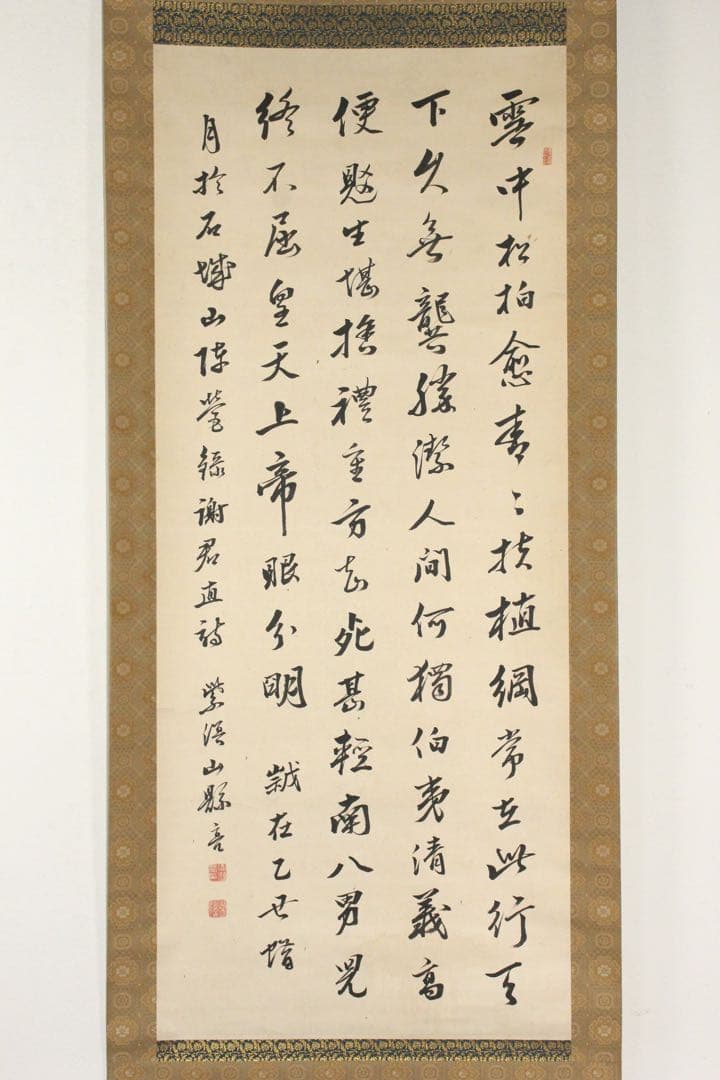 雪中松柏愈青〻扶植綱常在此行天
下久無龔勝潔人間何獨伯夷清義高
便覺生堪捨禮重方知死甚輕南八男兒
終不屈皇天上帝眼分明 歳在乙丑蜡
月於石城山陣營録謝君直詩 紫溟山縣亮